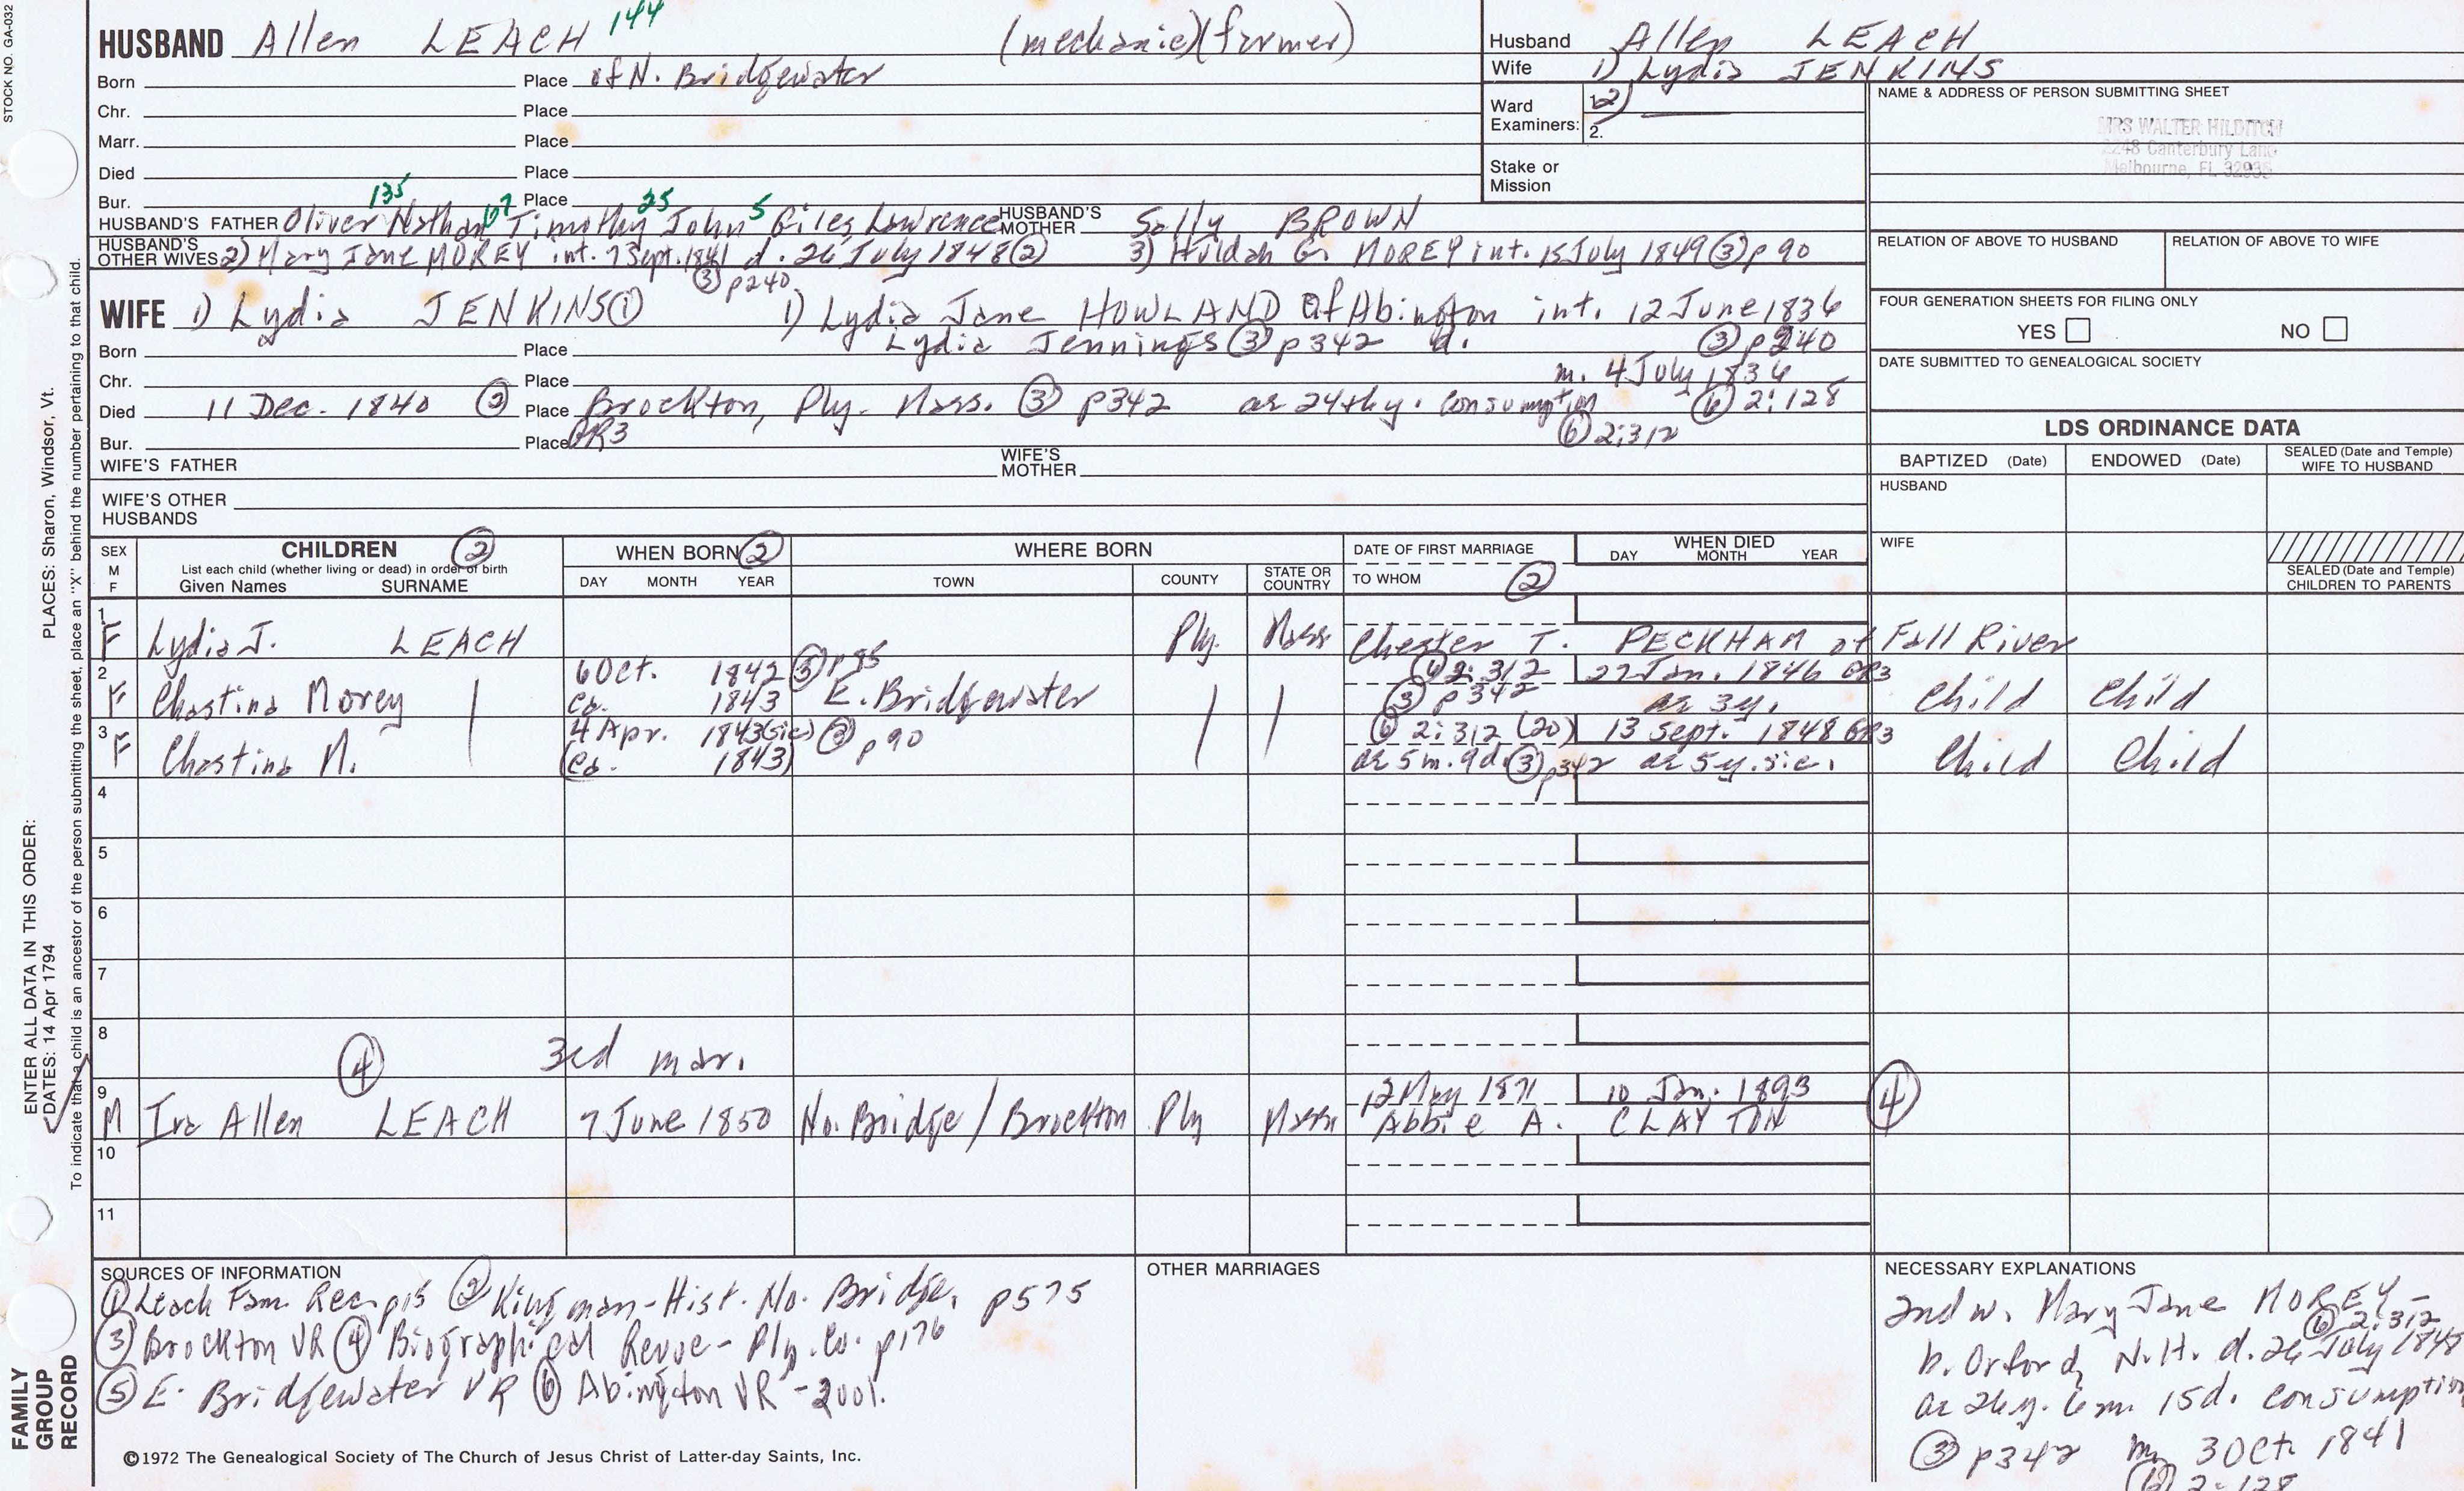 STOCK NO. GA-032
HUSBAND Allen LEACH 144 (mechanic)(farmer)
Born Place of N. Bridgewater
Chr. Place
Marr. Place
Died Place
Bur. Place
135 67 25 5
HUSBAND'S FATHER Oliver Nathan Timothy John Giles Lawrence HUSBAND'S MOTHER Sally BROWN
HUSBAND'S OTHER WIVES 2) Mary Jane MOREY int. 7 Sept. 1841 d. 26 July 1848 (2) 3) Huldah G. MOREY int. 15 July 1849 (3) p 90
(3) p240
WIFE 1) Lydia JENKINS (1) 1) Lydia Jane HOWLAND of Abington int. 12 June 1836
Lydia Jennings (3) p342 d. (3) p240
Born Place
Chr. Place m. 4 July 1836
Died 11 Dec. 1840 (3) Place Brockton, Ply. Mass. (3) p342 ae 24th y. consumption (6) 2:128
Bur. Place GR3 (6) 2:312
WIFE'S FATHER WIFE'S MOTHER
WIFE'S OTHER HUSBANDS
Husband Allen LEACH
Wife 1) Lydia JENKINS
Ward Examiners: 1. 2)
2.
Stake or Mission
NAME & ADDRESS OF PERSON SUBMITTING SHEET
MRS WALTER HILDITCH
2248 Canterbury Lane
Melbourne, FL 32935
RELATION OF ABOVE TO HUSBAND RELATION OF ABOVE TO WIFE
FOUR GENERATION SHEETS FOR FILING ONLY
YES NO
DATE SUBMITTED TO GENEALOGICAL SOCIETY
LDS ORDINANCE DATA
BAPTIZED (Date) ENDOWED (Date) SEALED (Date and Temple) WIFE TO HUSBAND
HUSBAND
WIFE
SEALED (Date and Temple) CHILDREN TO PARENTS
SEX M F
CHILDREN (2)
List each child (whether living or dead) in order of birth
Given Names SURNAME
WHEN BORN (2)
DAY MONTH YEAR
WHERE BORN
TOWN COUNTY STATE OR COUNTRY
DATE OF FIRST MARRIAGE
TO WHOM (2)
WHEN DIED
DAY MONTH YEAR
1
F Lydia J. LEACH Ply. Mass Chester T. PECKHAM of Fall River
2 6 Oct. 1842 (5) p85 (6) 2:312 22 Jan. 1846 GR3
F Chastina Morey ca. 1843 E. Bridgewater (3) p342 ae 3y. Child Child
3 4 Apr. 1843 (sic) (3) p90 (6) 2:312 (20) 13 Sept. 1848 GR3
F Chastina M. (ca. 1843) ae 5 m. 9d. (3) p342 ae 5y. sic. Child Child
4
5
6
7
8
(4) 3rd mar.
9 12 May 1871 10 Jan. 1893
M Ira Allen LEACH 7 June 1850 No. Bridge / Brockton Ply Mass Abbie A. CLAYTON (4)
10
11
SOURCES OF INFORMATION
(1) Leach Fam. Rec. p15 (2) Kingman-Hist. No. Bridge. p575
(3) Brockton VR (4) Biographical Revue - Ply. Co. p176
(5) E. Bridgewater VR (6) Abington VR - 2001.
OTHER MARRIAGES
NECESSARY EXPLANATIONS
2nd w. Mary Jane MOREY -
(6) 2:312
b. Orford, N.H. d. 26 July 1848
ae 26y. 6m. 15d. consumption
(3) p342 m. 3 Oct. 1841
(6) 2:128
©1972 The Genealogical Society of The Church of Jesus Christ of Latter-day Saints, Inc.
PLACES: Sharon, Windsor, Vt.
ENTER ALL DATA IN THIS ORDER:
DATES: 14 Apr 1794
To indicate that a child is an ancestor of the person submitting the sheet, place an "X" behind the number pertaining to that child.
FAMILY GROUP RECORD